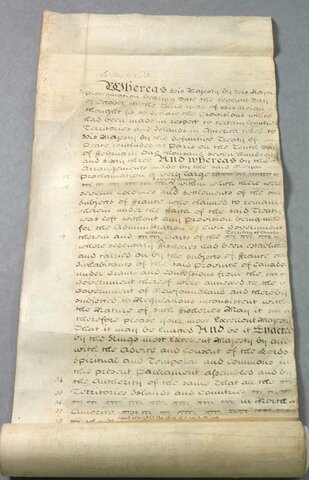 Whereas his Majesty by his Royal
Proclamation bearing date the seventh day
of October in the third year of his Reign
thought fit to declare the Provisions which
had been made in respect to certain Countries
Territories and Islands in America ceded to
his Majesty by the definitive Treaty of
Peace concluded at Paris on the tenth day
of February One thousand seven hundred
and sixty three And whereas by the
Arrangements made by the said Royal
Proclamation a very large
within which there were
several Colonies and Settlements of the
Subjects of France who claimed to remain
therein under the faith of the said Treaty
was left without any Provision being made
for the Administration of Civil Government
Territory of Canada
therein and Parts of the
where sedentary Fisheries had been established
and carried on by the Subjects of France
Inhabitants of the said Province of Canada
under Grants and Concessions from the
Government thereof were annexed to the
Government of Newfoundland and thereby
subjected to Regulations inconsistent with
the Nature of such Fisheries May it
therefore please your most Excellent Majesty
That it may be enacted And be it Enacted
by the Kings most Excellent Majesty by and
with the Advice and Consent of the Lords
Spiritual and Temporal and Commons in
this present Parliament assembled and by
the Authority of the same That all the
Territories Islands and Countries
in North
America